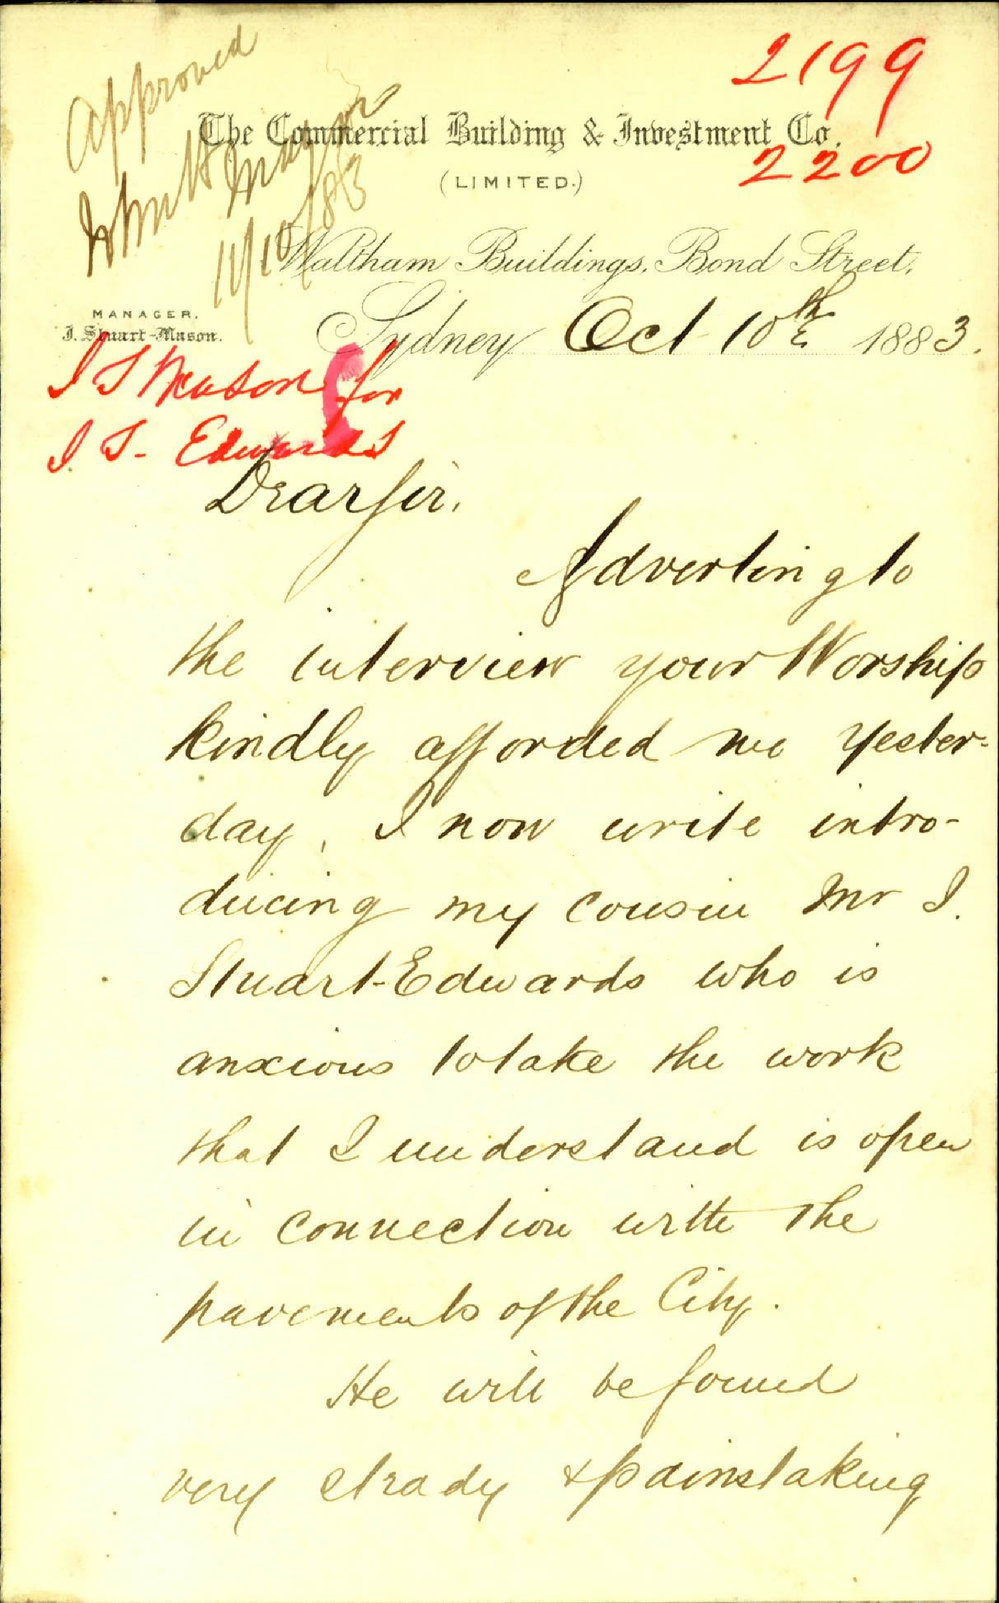 Approved
John H
Mayor
11/10/83
2199
2200
The Commercial Building & Investment Co.
(LIMITED.)
Waltham Buildings, Bond Street,
Sydney Oct 10th 1883.
MANAGER.
J. Stuart-Mason.
J S Mason for
J S. Edwards
Dear Sir,
Adverting to
the interview your Worship
kindly afforded me yester-
day, I now write intro-
ducing my cousin Mr J.
Stuart-Edwards who is
anxious to take the work
that I understand is open
in connection with the
pavements of the City.
He will be found
very steady & painstaking